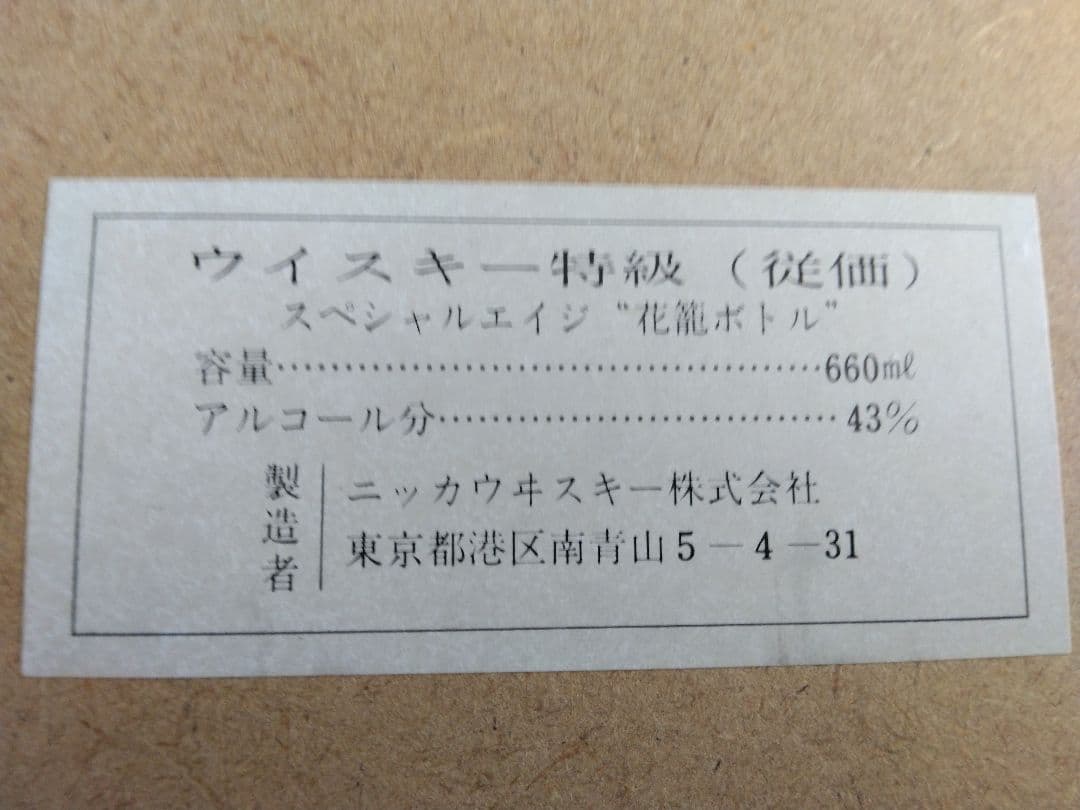 ウイスキー特級（従価）
スペシャルエイジ“花籠ボトル”
容量……………………………………660㎖
アルコール分……………………………43%
製造者
ニッカウヰスキー株式会社
東京都港区南青山5－4－31